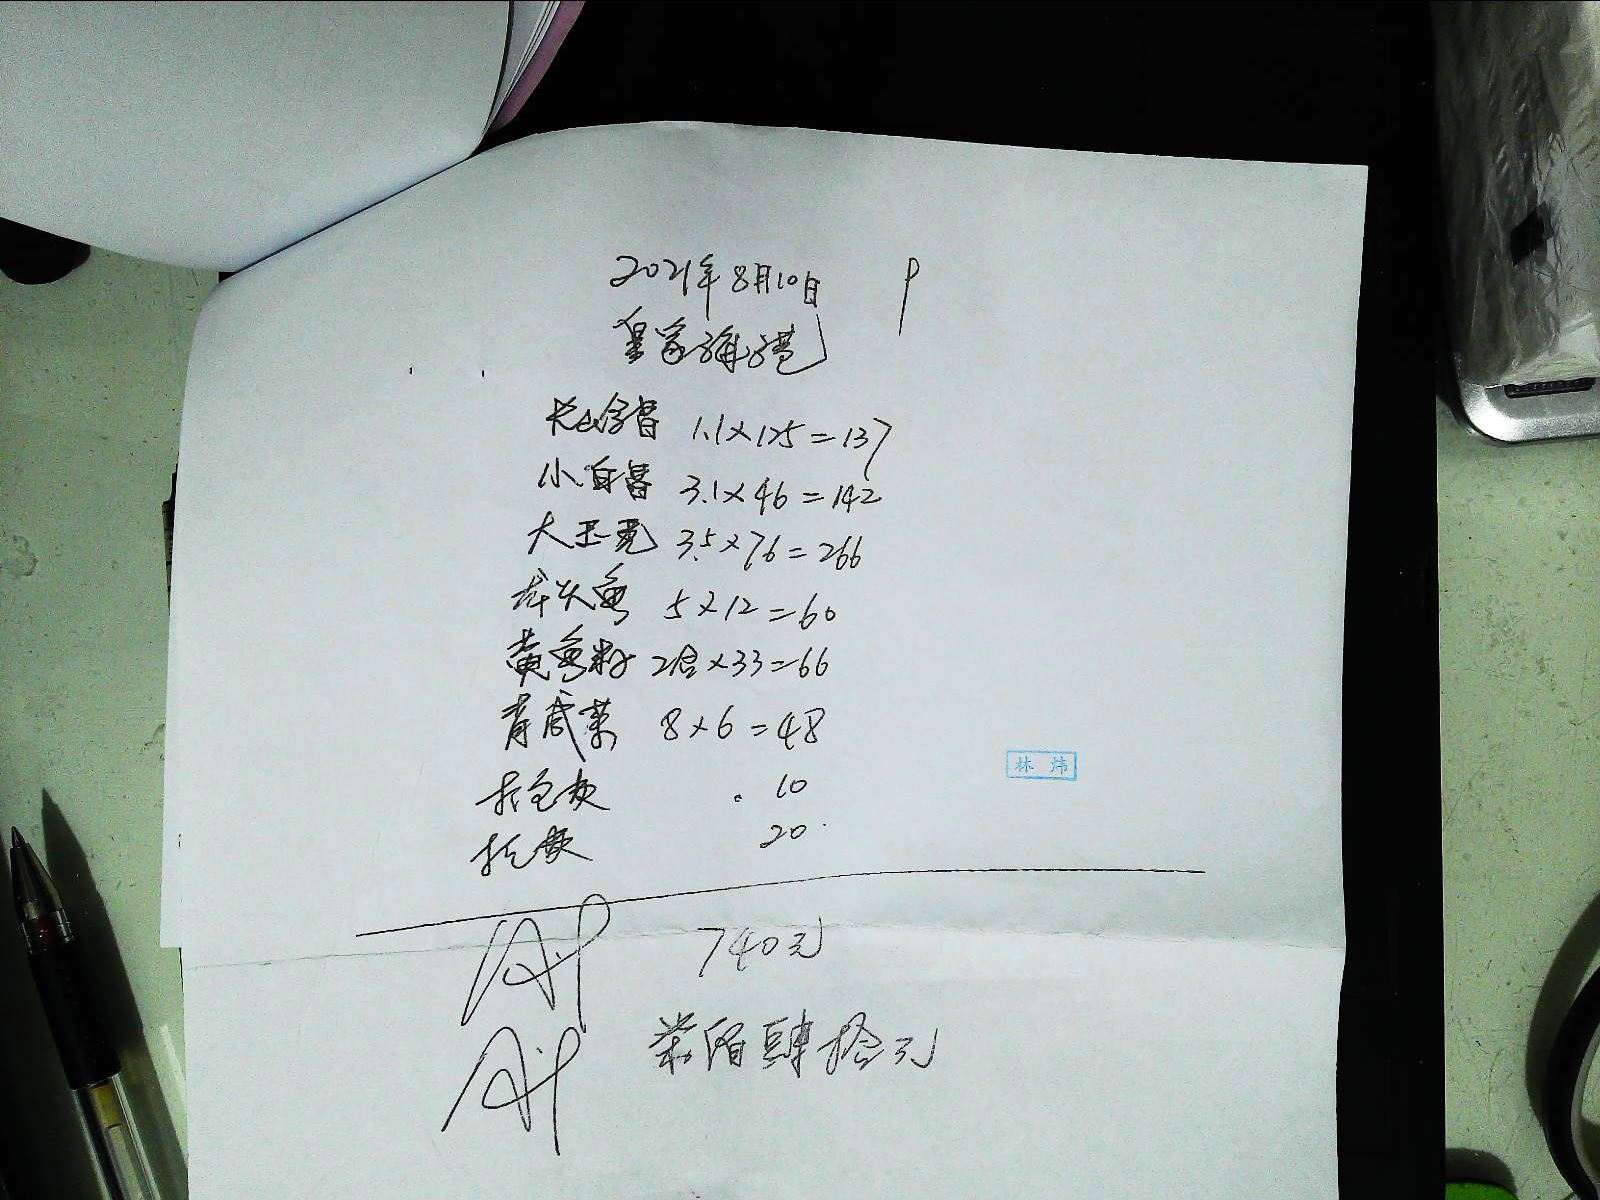 2021年8月10日 P
皇家海港
1.1×125=137
小白 3.1×46=142
大玉 3.5×76=266
头鱼 5×12=60
黄鱼籽 2合×33=66
青咸菜 8×6=48
打包费 10
打车费 20
740元
柒佰肆拾元
林炜